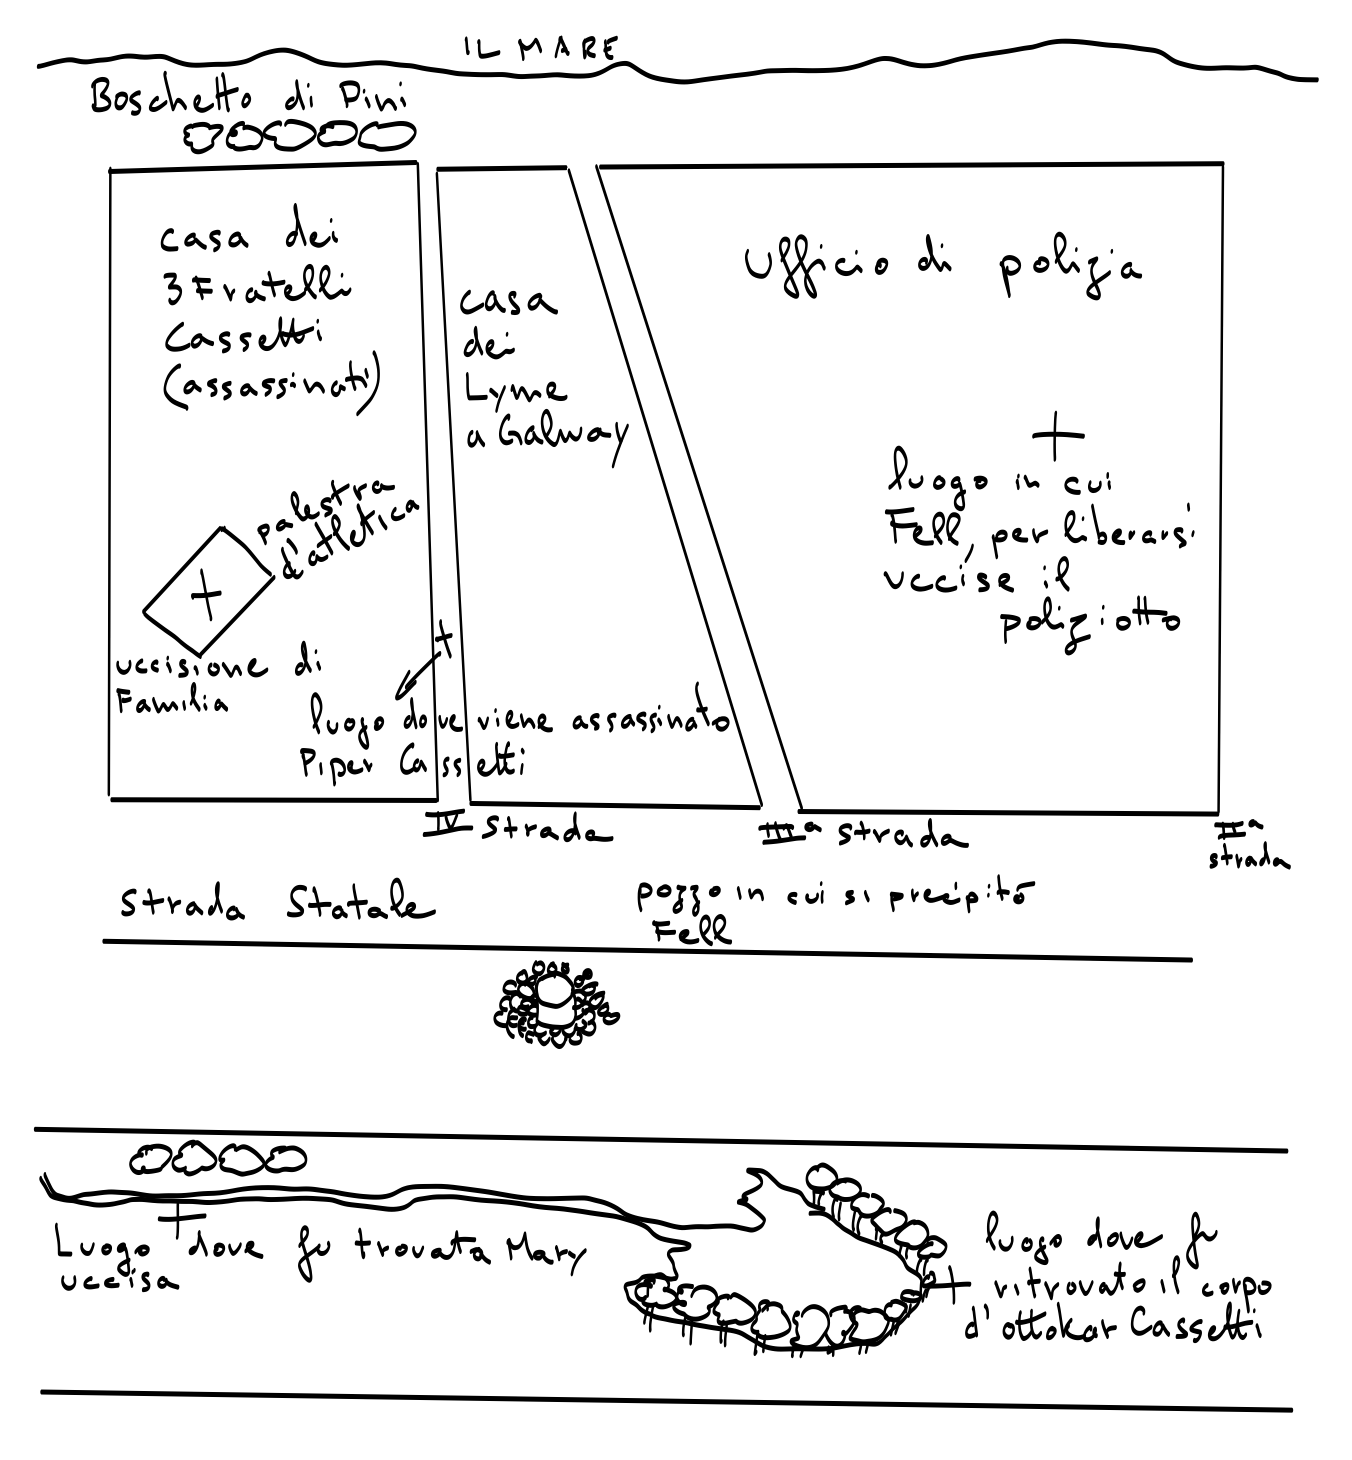 IL MARE
Boschetto di Pini
casa dei
3 Fratelli
Cassetti
(assassinati)
casa
dei
Lyme
a Galway
Ufficio di polizia
luogo in cui
Fell, per liberarsi
uccise il
poliziotto
palestra
d'atletica
uccisione di
Familia
luogo dove viene assassinato
Piper Cassetti
IV strada
IIIª strada
IIª
strada
strada Statale
pozzo in cui si precipitò
Fell
Luogo dove fu trovata Mary
uccisa
luogo dove fu
ritrovato il corpo
d'ottokar Cassetti